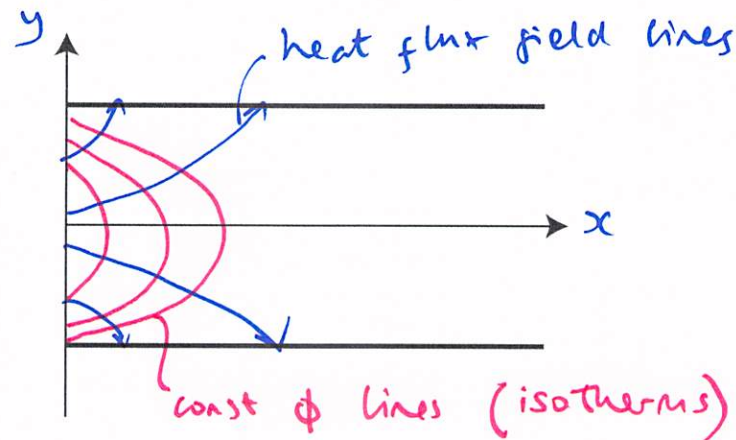 y
heat flux field lines
x
const ϕ lines (isotherms)